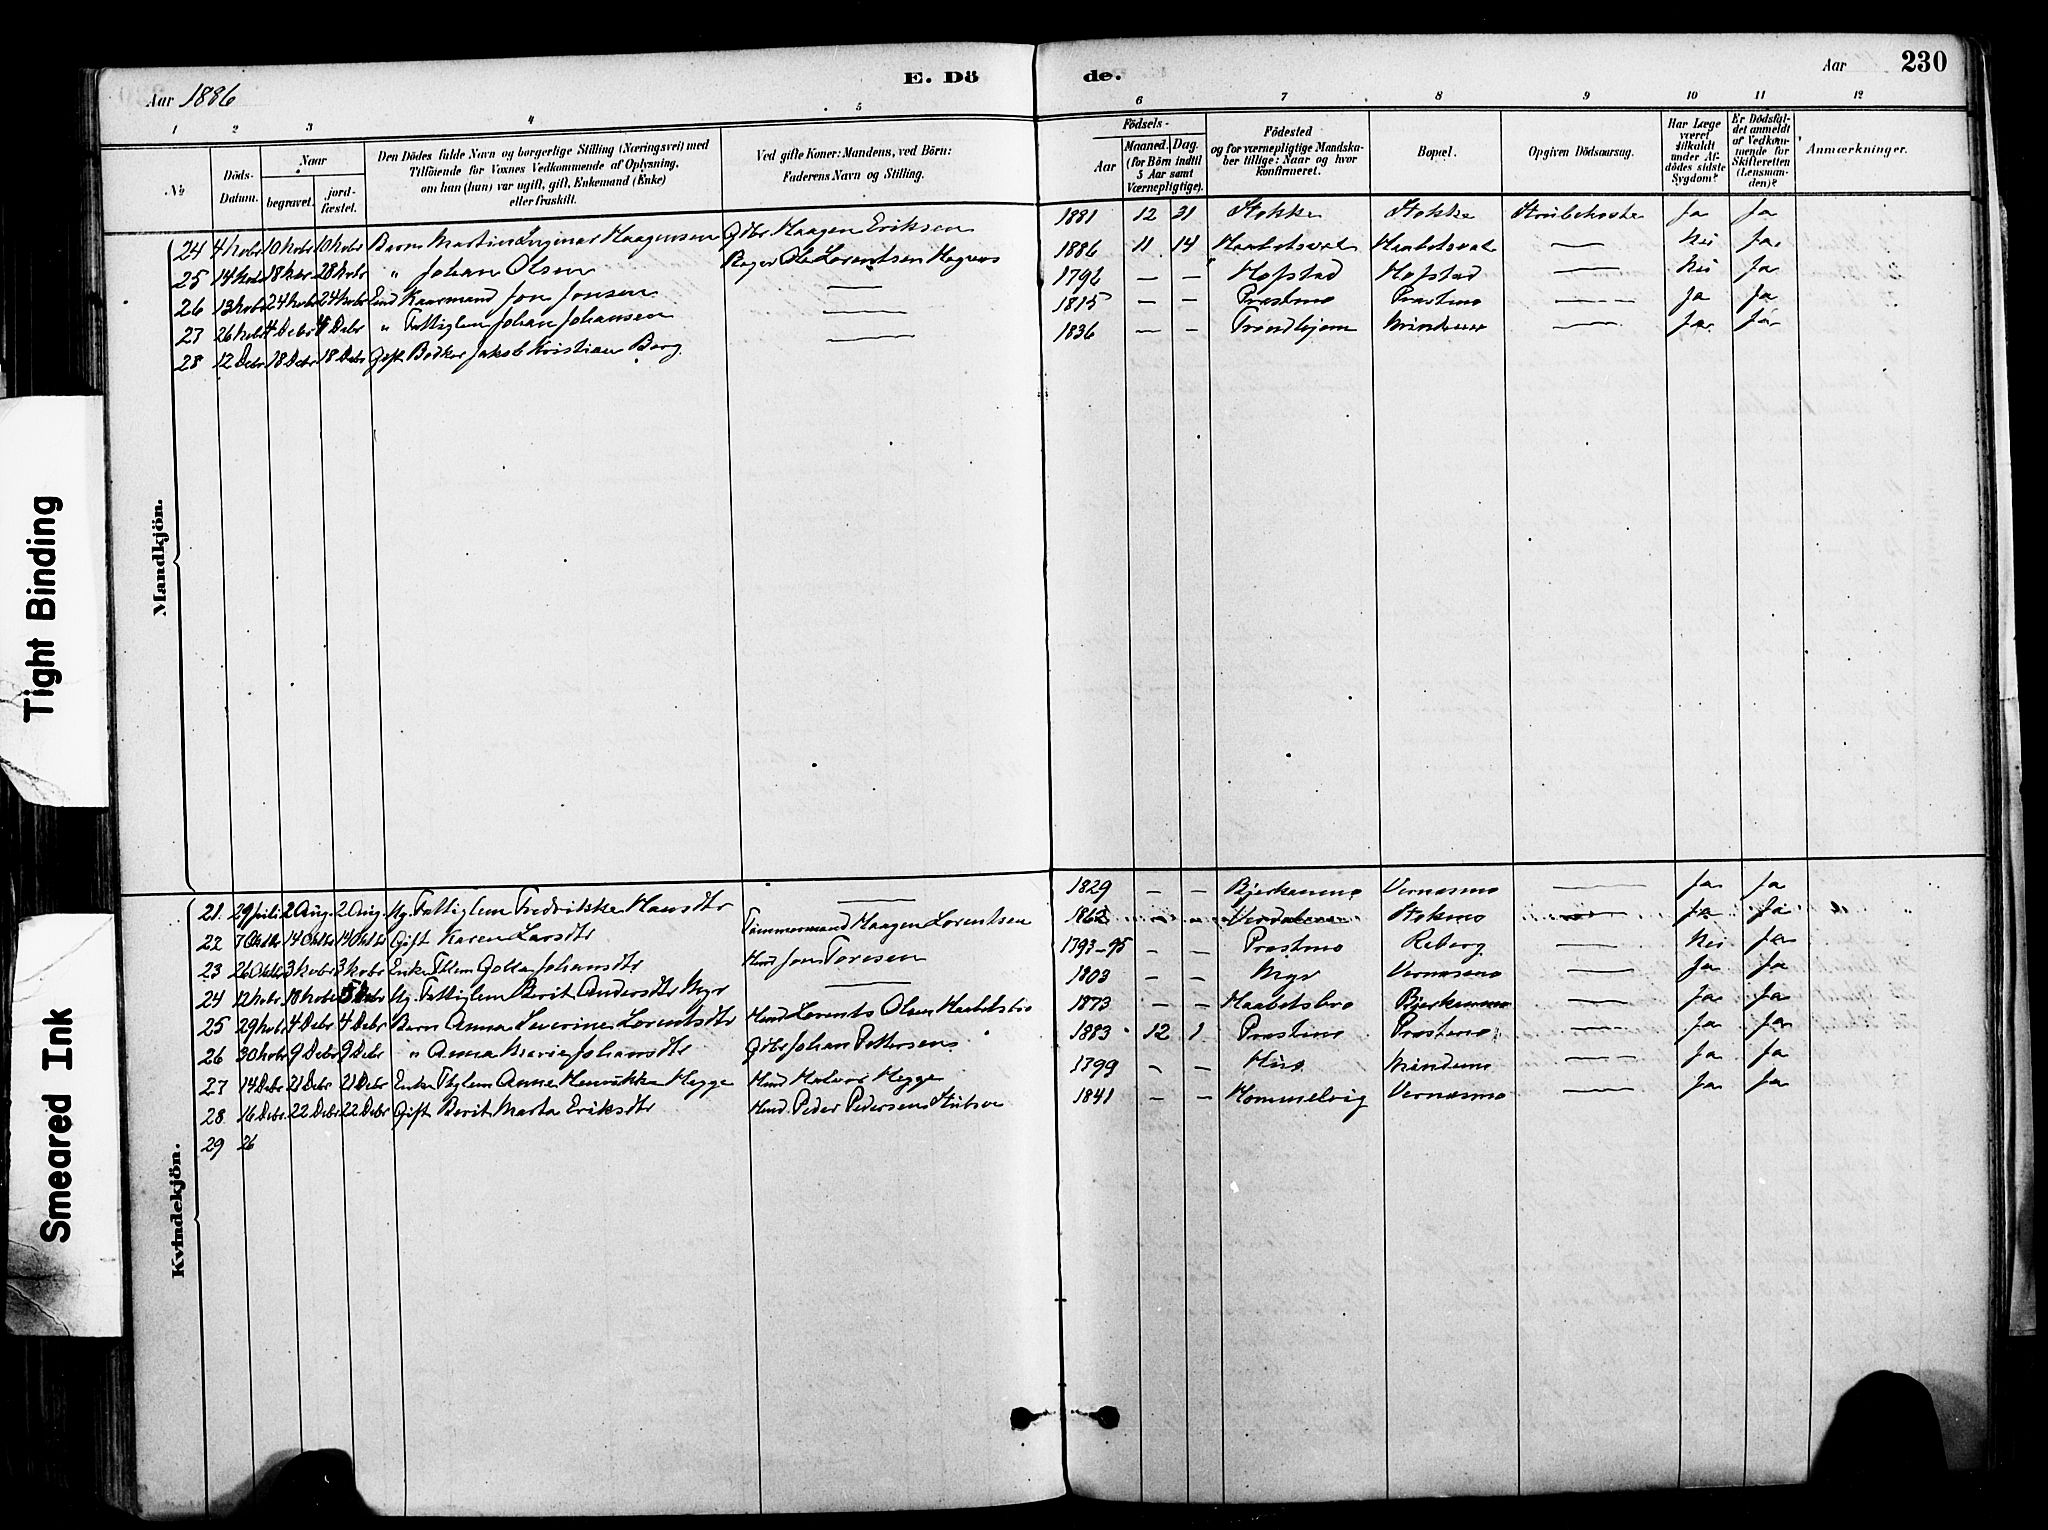 Aar 1886
E. Dö
de.
Aar
230
1 2 3 4 5 6 7 8 9 10 11 12
№
Döds-Datum.
Naar begravet. jord-fæstet.
Den Dödes fulde Navn og borgerlige Stilling (Næringsvei) med Tilföiende for Voxnes Vedkommende af Oplysning, om han (hun) var ugift, gift, Enkemand (Enke) eller fraskilt.
Ved gifte Koner: Mandens, ved Börn: Faderens Navn og Stilling.
Födsels-
Aar
Maaned. Dag. (for Börn indtil 5 Aar samt Værnepligtige).
Födested og for værnepligtige Mandska-ber tillige: Naar og hvor konfirmeret.
Bopæl.
Opgiven Dödsaarsag.
Har Læge været tilkaldt under Af-dödes sidste Sygdom?
Er Dödsfal-det anmeldt af Vedkom-mende for Skifteretten (Lensman-den)?
Anmærkninger.
Mandkjön.
24 4 Novbr 10 Novbr 10 Novbr Barn Martin Ingimar Haagensen Gbr Haagen Eriksen 1881 12 31 Stokke Stokke Strubehoste Ja Ja
25 14 Novbr 18 Novbr 28 Novbr " Johan Olsen Ole Lorentsen 1886 11 14 Haabetsval Haabetsval — Nei Ja
26 13 Novbr 24 Novbr 24 Novbr Enk Kaarmand Jon Jonsen — 1792 — — Hofstad Hofstad — Nei Ja
27 26 Novbr 4 Debr 4 Debr " Fattiglem Johan Johansen — 1815 — — Præstmo Præstmo — Ja Ja
28 12 Debr 18 Debr 18 Debr Gift Bödker Jakob Kristian Berg — 1836 — — Trondhjem — Ja Ja
Kvindekjön.
21. 29 Juli 2 Aug. 2 Aug. Ug. Fattiglem Fredrikke Hansdtr — 1829 — — Bjerkanmo Vernæsmo — Ja Ja
22 7 Oktbr 14 Oktbr 14 Oktbr Gift Karen Larsdtr Tømmermand Haagen Lorentsen 1862 — — Værdalen Stokmo — Ja Ja
23 26 Oktbr 3 Novbr 3 Novbr Enke Fklem Golla Johansdtr Mand Jon Toresen 1793-95 — — Præstmo Reberg — Nei Ja
24 12 Novbr 18 Novbr 5 Debr Ug. Fattiglem Berit Andersdtr Myr — 1803 — — Myr Vernæsmo — Ja Ja
25 29 Novbr 4 Debr 4 Debr Barn Anna Severine Lorentsdtr Mand Lorents Olsen Haabetsbro 1873 — — Haabetsbro Bjerkanmo — Ja Ja
26 30 Novbr 9 Debr 9 Debr " Anna Marie Johansdtr Gbr Johan Pettersens 1883 12 1 Præstmo Præstmo — Ja Ja
27 14 Debr 21 Debr 21 Debr Enke Fkglem Anne Henrikka Hegge Mand Halvor Hegge 1799 — — — Ja Ja
28 16 Debr 22 Debr 22 Debr Gift Berit Marta Eriksdtr Mand Peder Pedersens 1841 — — Hommelvig Vernæsmo — Ja Ja
29 26
Tight Binding
Smeared Ink